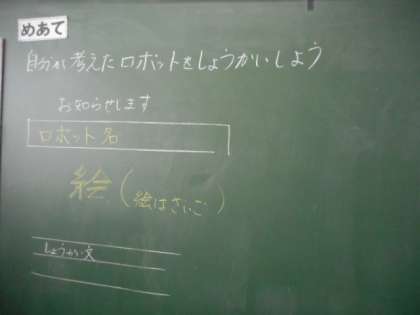 めあて
自分が考えたロボットをしょうかいしよう
お知らせします
ロボット名
絵(絵はさいご)
しょうかい文